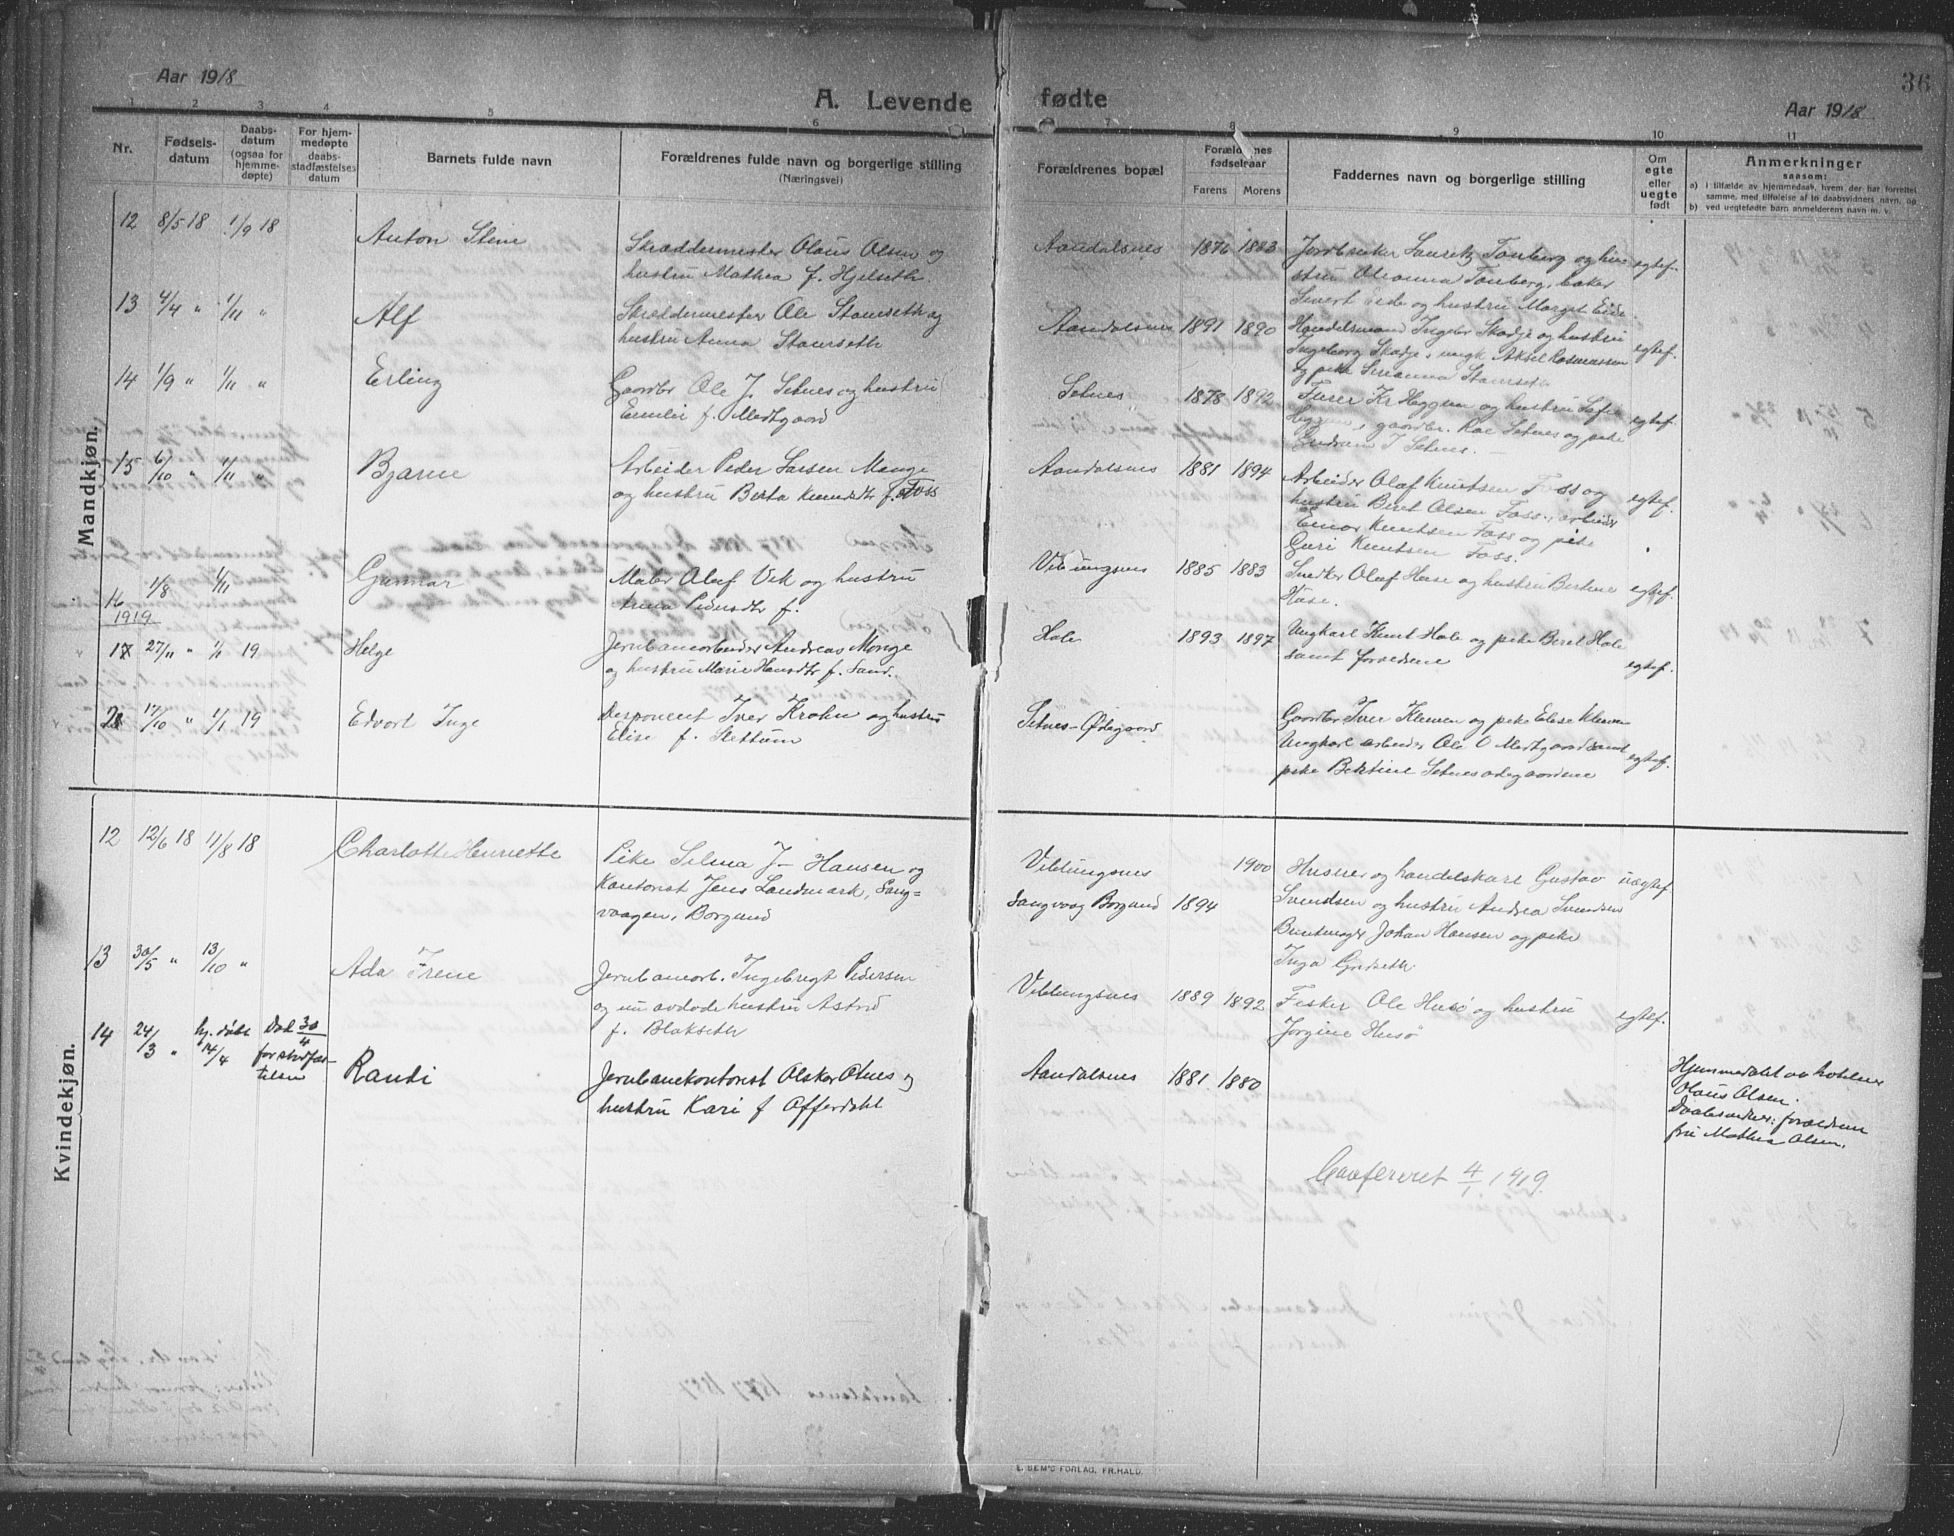 Aar 1918
A. Levende fødte
Aar 1918
36
1 2 3 4 5 6 7 8 9 10 11
Nr.
Fødsels-
datum
Daabs-
datum
(ogsaa for
hjemme-
døpte)
For hjem-
medøpte
daabs-
stadfæstelses
datum
Barnets fulde navn
Forældrenes fulde navn og borgerlige stilling
(Næringsvei)
Forældrenes bopæl
Forældrenes
fødselsaar
Farens Morens
Faddernes navn og borgerlige stilling
Om
egte
eller
uegte
født
Anmerkninger
saasom:
a) i tilfælde av hjemmedaab, hvem der har forrettet
samme, med tilføielse af to daabsvidners navn, og
b) ved uegtefødte barn anmelderens navn m. v.
Mandkjøn.
12 8/5 18 1/9 18
Anton Stene
Skræddermester Olaus Olsen og
hustru Mathea f. Hjelseth.
Aandalsnes 1876 1883
Jordbruker Lauritz Tonberg og hu-
stru Oleanna Tonberg, baker
Sivert Eide og hustru Marget Eide.
egtef.
13 4/4 " 1/11 "
Alf
Skræddermester Ole Stamseth og
hustru Anna Stamseth
Aandalsnes 1891 1890
Handelsmand Ingebr Skodje og hustru
Ingeborg Skodje, ungk Aksel Rasmussen
og pike Serianna Stamseth
egtef.
14 1/9 " 1/11 "
Erling
Gaardbr Ole J. Setnes og hustru
Emilie f. Medtgaard
Setnes 1878 1892
Furer Kr Heggem og hustru Sofie
Heggem, gaardbr. Roe Setnes og pike
Gudrun J Setnes.
egtef.
15 6/10 " 1/11 "
Bjarne
Arbeider Peder Larsen Monge
og hustru Berta Knudsdtr f. Foss
Aandalsnes 1881 1894
Arbeider Olaf Knutsen Foss og
hustru Beret Olsen Foss, arbeider
Einar Knutsen Foss og pike
Guri Knutsen Foss.
egtef.
16 1/8 1/11
Gunnar
Maler Olaf Vik og hustru
Anna Pedersdtr f.
Veblungsnes 1885 1883
Snedker Olaf Hase og hustru Bertine
Hase.
egtef.
1919
17 27/11 " 1/1 19
Helge
Jernbanearbeider Andreas Monge
og hustru Marie Hansdtr f. Sand.
Hole 1893 1897
Ungkarl Knut Hole og pike Beret Hole
samt forældrene
egtef.
17/10 " 1/1 19
Edvart Inge
Disponent Iver Krohn og hustru
Elise f. Slettum
Setnes-Ødegaard
Gaardbr Iver Kleven og pike Elise Kleven
Ungkarl arbeider Ole O Medtgaard samt
pike Bertine Setnesødegaardene
egtef.
Kvindekjøn.
12 12/6 18 11/8 18
Charlotte Henriette
Pike Selma J Hansen og
Kantorist Jens Landmark, Sang-
vaagen, Borgund
Veblungsnes 1900
Sangvaag Borgund 1894
Huseier og handelskarl Gustav
Svendsen og hustru Andrea Svendsen
Buntmager Johan Hansen og pike
Inga Gridseth
uægtef.
13 30/5 " 13/10 "
Ada Irene
Jernbanearb. Ingebregt Pedersen
og nu avdøde hustru Astrid
f. Blakseth
Veblungsnes 1889 1892
Fisker Ole Husø og hustru
Jørgine Husø
egtef.
14 24/3 " hj. døbt 14/4
Død 30/4
før stadfæs-
telsen
Randi
Jernbanekontorist Olskar Otnes og
hustru Kari f Afferdahl
Aandalsnes 1881 1880
Hjemmedøbt av
Olaus Olsen.
Daabsvidner: forældrene
fru Mathea Olsen.
Confereret 4/1 1919.
E. SEM'S FORLAG, FR.HALD.